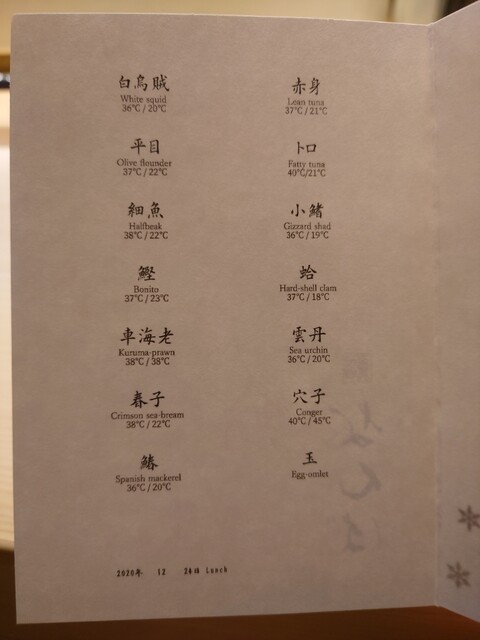 白烏賊
White squid
36℃ / 20℃
平目
Olive flounder
37℃ / 22℃
細魚
Halfbeak
38℃ / 22℃
鰹
Bonito
37℃ / 23℃
車海老
Kuruma-prawn
38℃ / 38℃
春子
Crimson sea-bream
38℃ / 22℃
鰆
Spanish mackerel
36℃ / 20℃
赤身
Lean tuna
37℃ / 21℃
トロ
Fatty tuna
40℃/21℃
小鰭
Gizzard shad
36℃ / 19℃
蛤
Hard-shell clam
37℃ / 18℃
雲丹
Sea urchin
36℃ / 20℃
穴子
Conger
40℃ / 45℃
玉
Egg-omlet
2020年 12 24日 Lunch